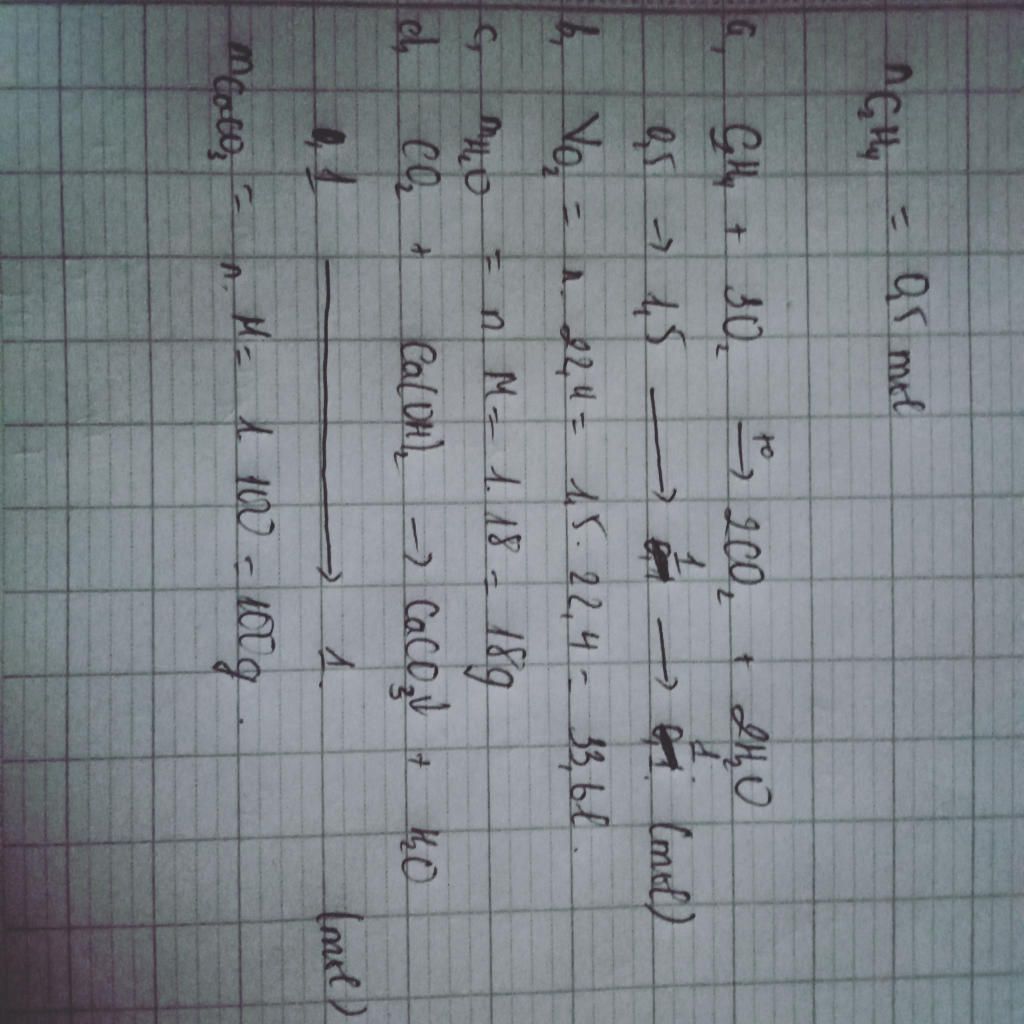 nC₂H₄ = 0,5 mol
a, C₂H₄ + 3O₂ —t°→ 2CO₂ + 2H₂O
0,5 → 1,5 → 1 → 1 (mol)
b, VO₂ = n. 22,4 = 1,5. 22,4 = 33,6l.
c, mH₂O = n M = 1.18 = 18g
d, CO₂ + Ca(OH)₂ → CaCO₃↓ + H₂O
1 → 1 (mol)
mCaCO₃ = n. M = 1 100 = 100g.